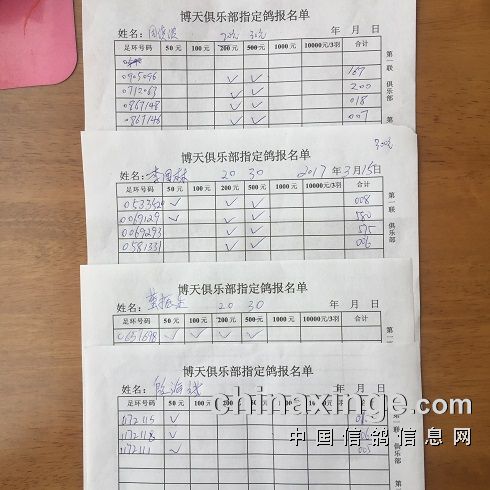 博天俱乐部指定鸽报名单
姓名: 20元 30元 年 月 日
足环号码 50 元 100 元 200 元 500 元 1000 元 10000 元/3羽 合计
0905096 ✓ ✓ 167
0712063 ✓ ✓ 200
0867148 ✓ ✓ 018
0867146 ✓ ✓ 007
第一联 俱乐部
博天俱乐部指定鸽报名单
姓名: 李国林 20 30 2017 年 3 月 15 日
足环号码 50 元 100 元 200 元 500 元 1000 元 10000 元/3羽 合计
✓ ✓ ✓ 008
0069129 ✓ ✓ ✓ 580
0069293 ✓ ✓ 575
0581331 ✓ ✓ 006
第一联 俱乐部
博天俱乐部指定鸽报名单
姓名: 20 30 年 月 日
足环号码 50 元 100 元 200 元 500 元 1000 元 10000 元/3羽 合计
0651698 ✓ ✓ ✓ ✓
博天俱乐部指定鸽报名单
姓名: 年 月 日
足环号码 50 元 100 元 200 元 500 元
1172115 ✓
1172118 ✓
1172111 ✓ 003
第一联 俱乐部
chinaxinge.com
中国信鸽信息网